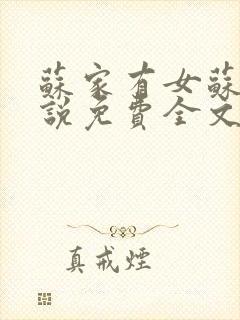 蘇家有女蘇
說免費全文
真戒煙